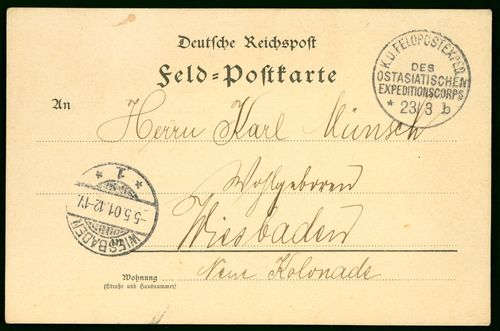 Deutsche Reichspost
Feld=Postkarte
K.D. FELDPOSTEXPED.
DES
OSTASIATISCHEN
EXPEDITIONSCORPS
* 23/3 b
An
Herrn Karl Münsch
Wohlgeboren
Wiesbaden
* 1 *
5.5.01.12-1
WIESBADEN
Wohnung
(Straße und Hausnummer)
Neue Kolonade